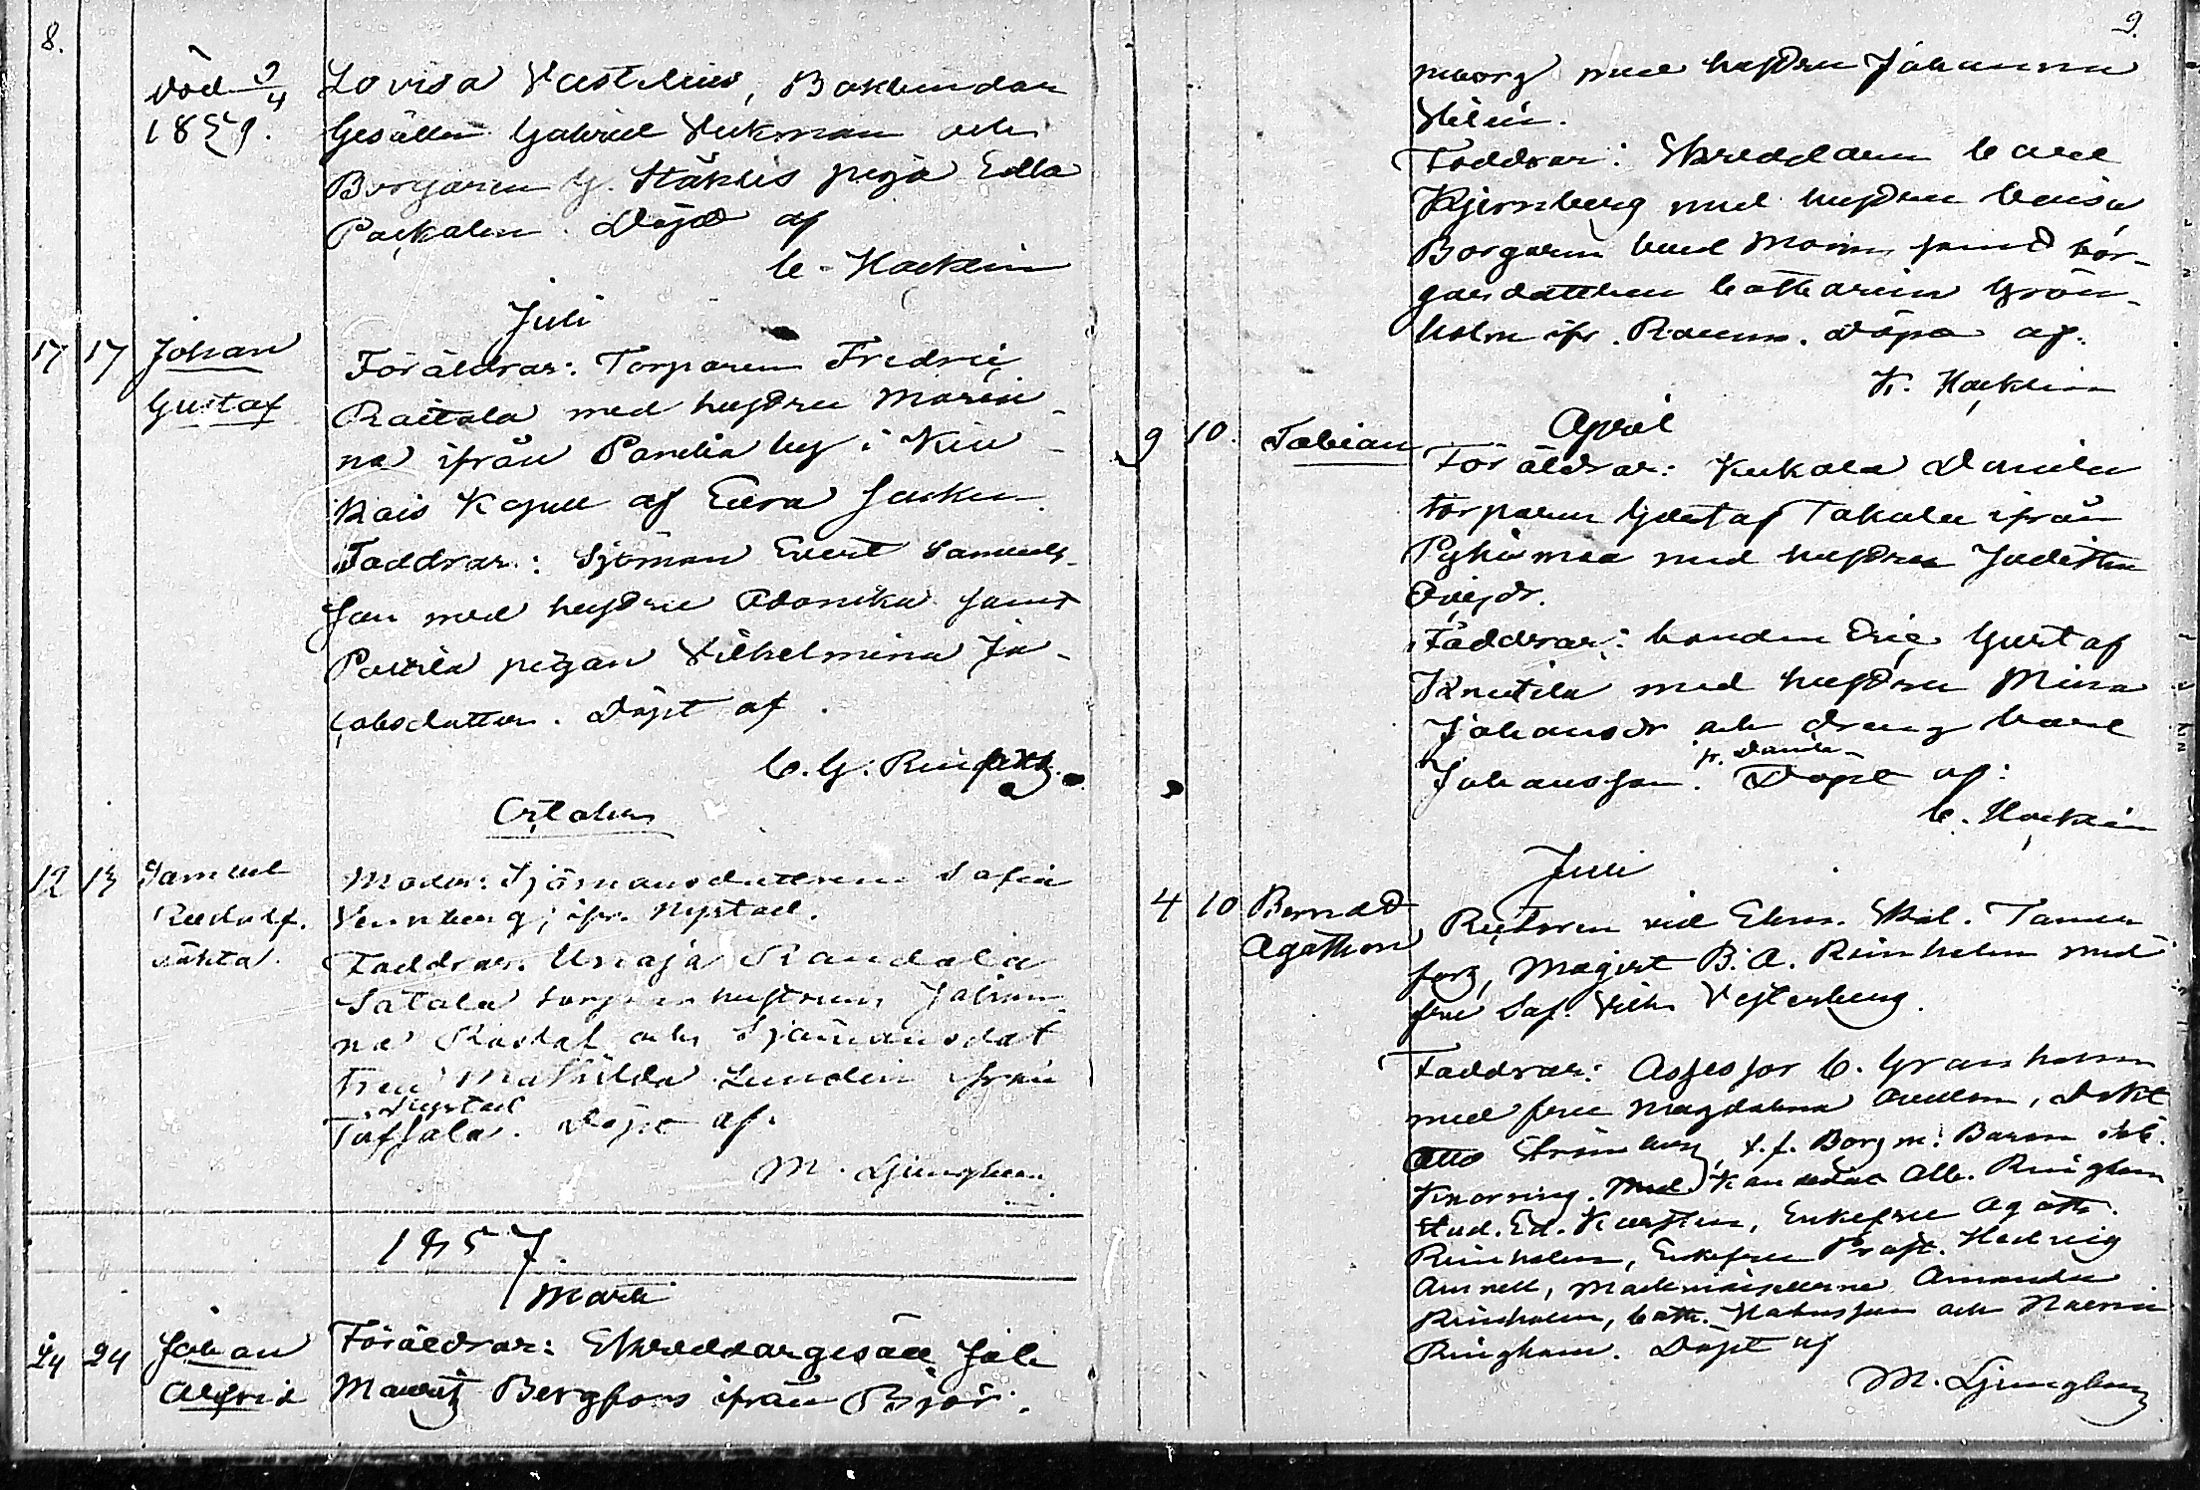 8.
död 9/4
1859.
Lovisa Vastelius, Bokbindar
Gesällen Gabriel Vickman och
Borgaren G. Ståhlis piga Edla
Packalen. Döpt af
C. Hacklin
Juli
17 17 Johan
Gustaf
Föräldrar: Torparen Fredric
Raitala med hustru Maria
na ifrån Panelia by i Kiu
kais Kapell af Eura Socken.
Faddrar: Sjöman Evert Samuels
son med hustru Adonika samt
Pavila pigan Vilhelmina Ja-
cobsdotter. Döpt af
C. G.
October
12 13 Samuel
Rudolf.
oäkta.
Moder: Sjömansdottren Sofia
Vennberg, ifr. Nystad.
Faddrar. Uscaja Randala
Satala torpar hustrun Johan
na Rostaf och Sjömansdot
tren Mathilda Lundin från
Nystad
Taffala. Döpt af.
M. Ljungberg
1857.
Martii
24 24 Johan
Alfrid
Föräldrar: Skreddargesäll Joh
Mauritz Bergfors ifrån Björ.
9.
neborg med hustru Johanna
Faddrar: Skreddaren Carl
Kjernberg med hustru Caisa
Borgaren Carl Monn samt bor-
garedottren Catharina Grön-
holm ifr. Raumo. Döpt af.
K. Hacklin
April
9 10. Fabian
Föräldrar: Kukola Daniela
torparen Gustaf Takala ifrån
Pyhämaa med hustru Juditha
Ericsdr.
Faddrar: bonden Eric Gustaf
Knutila med hustru Mina
Johansdr och dreng Carl
fr. Daniela
Johansson. Döpt af:
C. Hacklin
Juli
4 10 Berndt
Agathon
Rectoren vid Elem. Skol. Tammer
fors, Magist B. A. Reinholm med
fru Sof. Vilh. Vesterberg.
Faddrar: Assessor C. Granholm
med fru Magdalena Avellan, Dokt
Otto Strömborg, t.f. Borgm: Baron
Knorring. Med. Kandidat Alb. Ringbom
Stud. Ed. Karsten, Enkefru Agatha
Reinholm, Enkefru Prost. Hedvig
Amnell, Mademoisellerne Amanda
Reinholm, Cath. Mathesson och Naemi
Ringbom. Döpt af
M. Ljungberg